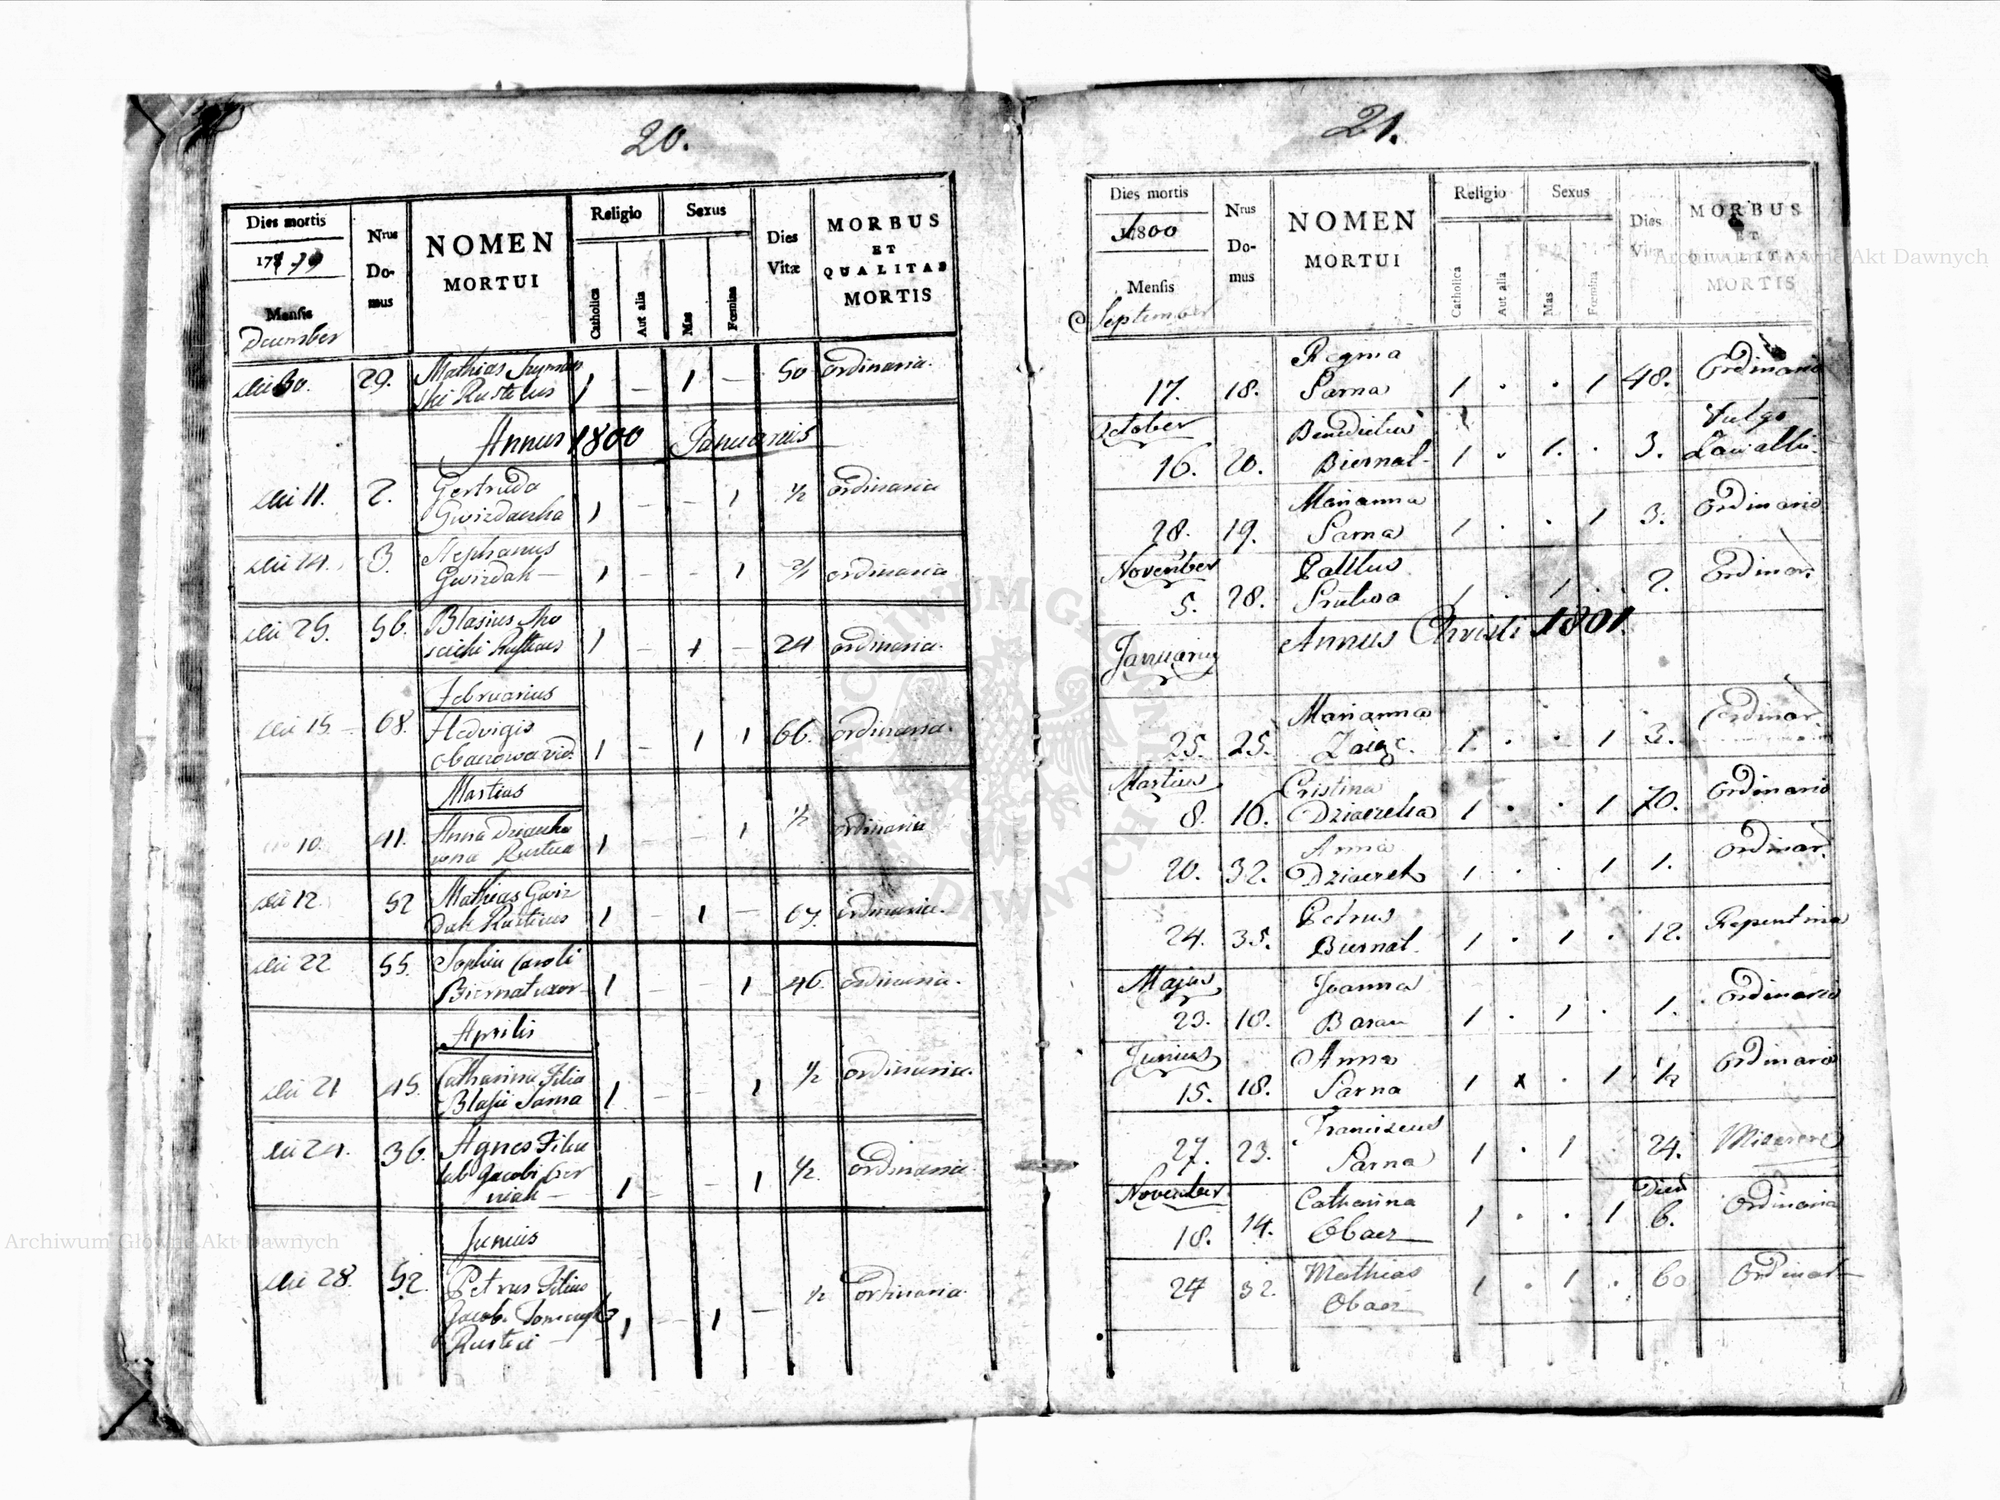 20.
Dies mortis
1799
Mensis
December
Nrus
Do-
mus
NOMEN
MORTUI
Religio
Catholica
Aut alia
Sexus
Mas
Fœmina
Dies
Vitæ
MORBUS
ET
QUALITAS
MORTIS
die 30. 29. Mathias Szyman 1 — 1 — 50 ordinaria.
ski Rusticus
Annus 1800 Januarius
die 11. 2. Gertruda 1 — — 1 1/2 ordinaria
Gwizdacka
die 14. 3. Stephanus 1 - - 1 ordinaria
Gwizdak —
die 25. 56. Blasius 1 — 1 — 24 ordinaria.
Rusticus
Februarius
die 15 — 68. Hedvigis 1 — 1 1 66. ordinaria.
Martius
10. 41. Anna 1 — 1 1/2 ordinaria
Rustica
die 12. 52 Mathias Gwiz 1 — 1 — 67. ordinaria.
dak Rusticus
die 22 55. Sophia Caroli 1 — — 1 46. ordinaria.
Biernat uxor
Aprilis
die 21 45. Catharina Filia 1 — — 1 1/2 ordinaria.
Blasii Sarna
die 24. 36. Agnes Filia 1 — — 1 1/2. ordinaria
lab. Jacobi
niak —
Junius
die 28. 52. Petrus Filius 1 — 1 — 1/2 ordinaria.
Jacob.
Rustici —
21.
Dies mortis
1800
Mensis
September
Nrus
Do-
mus
NOMEN
MORTUI
Religio
Catholica
Aut alia
Sexus
Mas
Fœmina
Dies
Vitæ
MORBUS
ET
QUALITAS
MORTIS
Regina
17. 18. Sarna 1 . . 1 48. Ordinaria
October Benedictus Vulgo
16. 20. Biernat 1 . 1. . 3.
Marianna
28. 19. Sarna 1 . . 1 3. Ordinaria
November Gallus
5. 28. 1 . 1 . 2. Ordinar.
Januarius Annus Christi 1801.
Marianna
25. 25. Zaięc. 1 . . 1 3. Ordinar.
Martius Cristina
8. 10. 1 . . 1 70. Ordinaria
Anna
20. 32. 1 . . 1 1. Ordinar.
Petrus
24. 35. Biernat. 1 . 1 . 12. Repentina
Majus Joanna
23. 18. Baran 1 . 1 . 1. Ordinaria
Junius Anna
15. 18. Sarna 1 x . 1 1/2 Ordinaria
Franciscus
27. 23. Sarna 1 . 1 24. Miserere
November Catharina Dies
18. 14. Obacz 1 . . 1 6. Ordinaria
24 32. Mathias 1 . 1 . 60 Ordinar
Obacz
Archiwum Główne Akt Dawnych
Archiwum Główne Akt Dawnych
ARCHIWUM GŁÓWNE AKT DAWNYCH